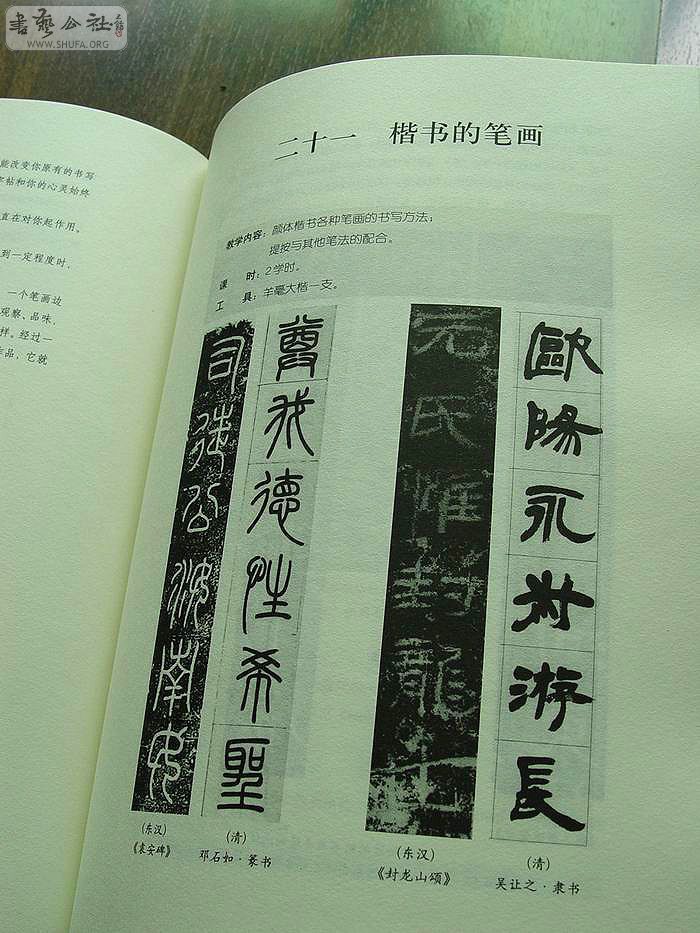 書藝公社
WWW.SHUFA.ORG
能改变你原有的书写
字帖和你的心灵始终
直在对你起作用。
到一定程度时，
一个笔画边
观察、品味，
样。经过一
作品，它就
二十一 楷书的笔画
教学内容：颜体楷书各种笔画的书写方法；
提按与其他笔法的配合。
课 时：2学时。
工 具：羊毫大楷一支。
司徒公汝南女
尊我德性希聖
元氏惟封龍
歐陽永叔游長
(东汉)
《袁安碑》
(清)
邓石如·篆书
(东汉)
《封龙山颂》
(清)
吴让之·隶书